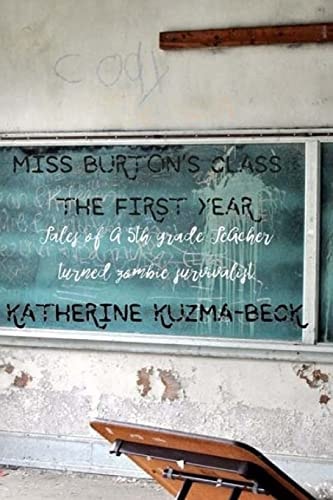 MISS BURTON'S CLASS
THE FIRST YEAR
Tales of A 5th grade Teacher
turned zombie survivalist
KATHERINE KUZMA-BECK